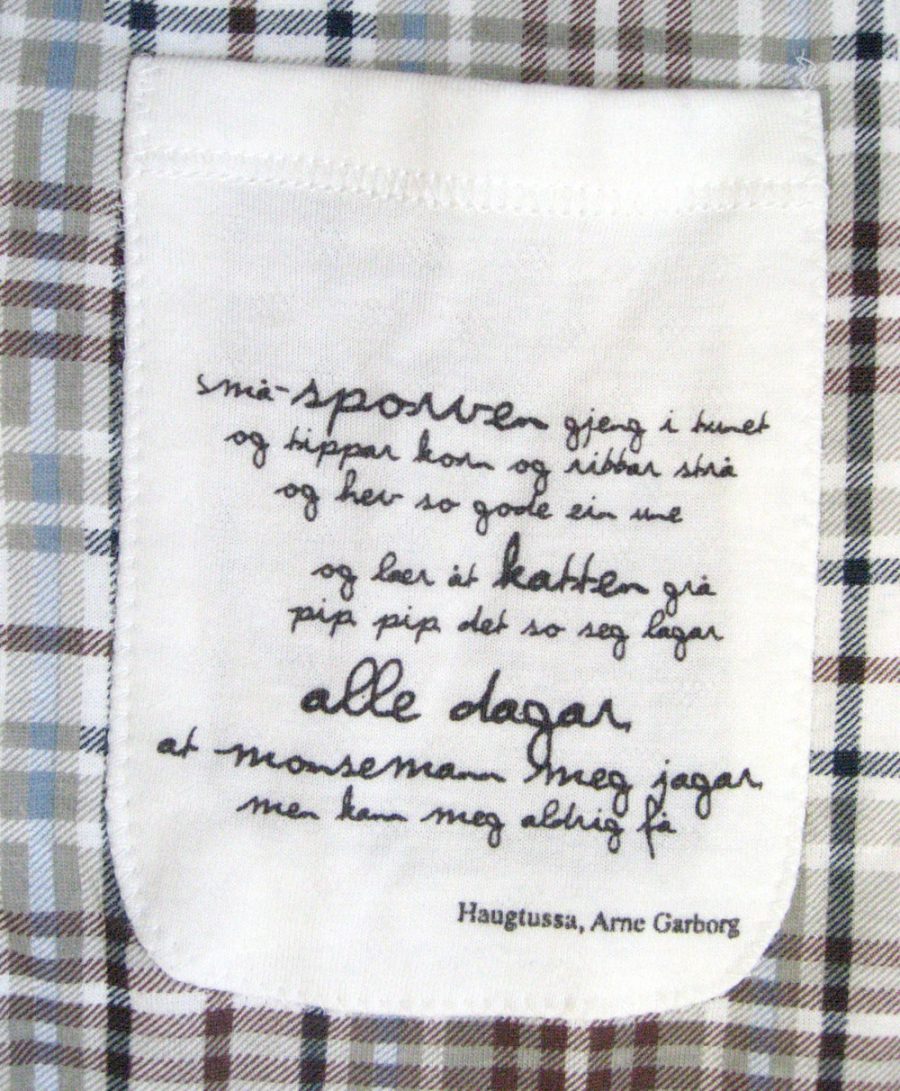 små-sporven gjeng i tunet
og tippar korn og ribbar strå
og hev so gode ein une
og lær åt katten grå
pip pip det so seg lagar
alle dagar
at monsemann meg jagar
men kann meg aldrig få
Haugtussa, Arne Garborg